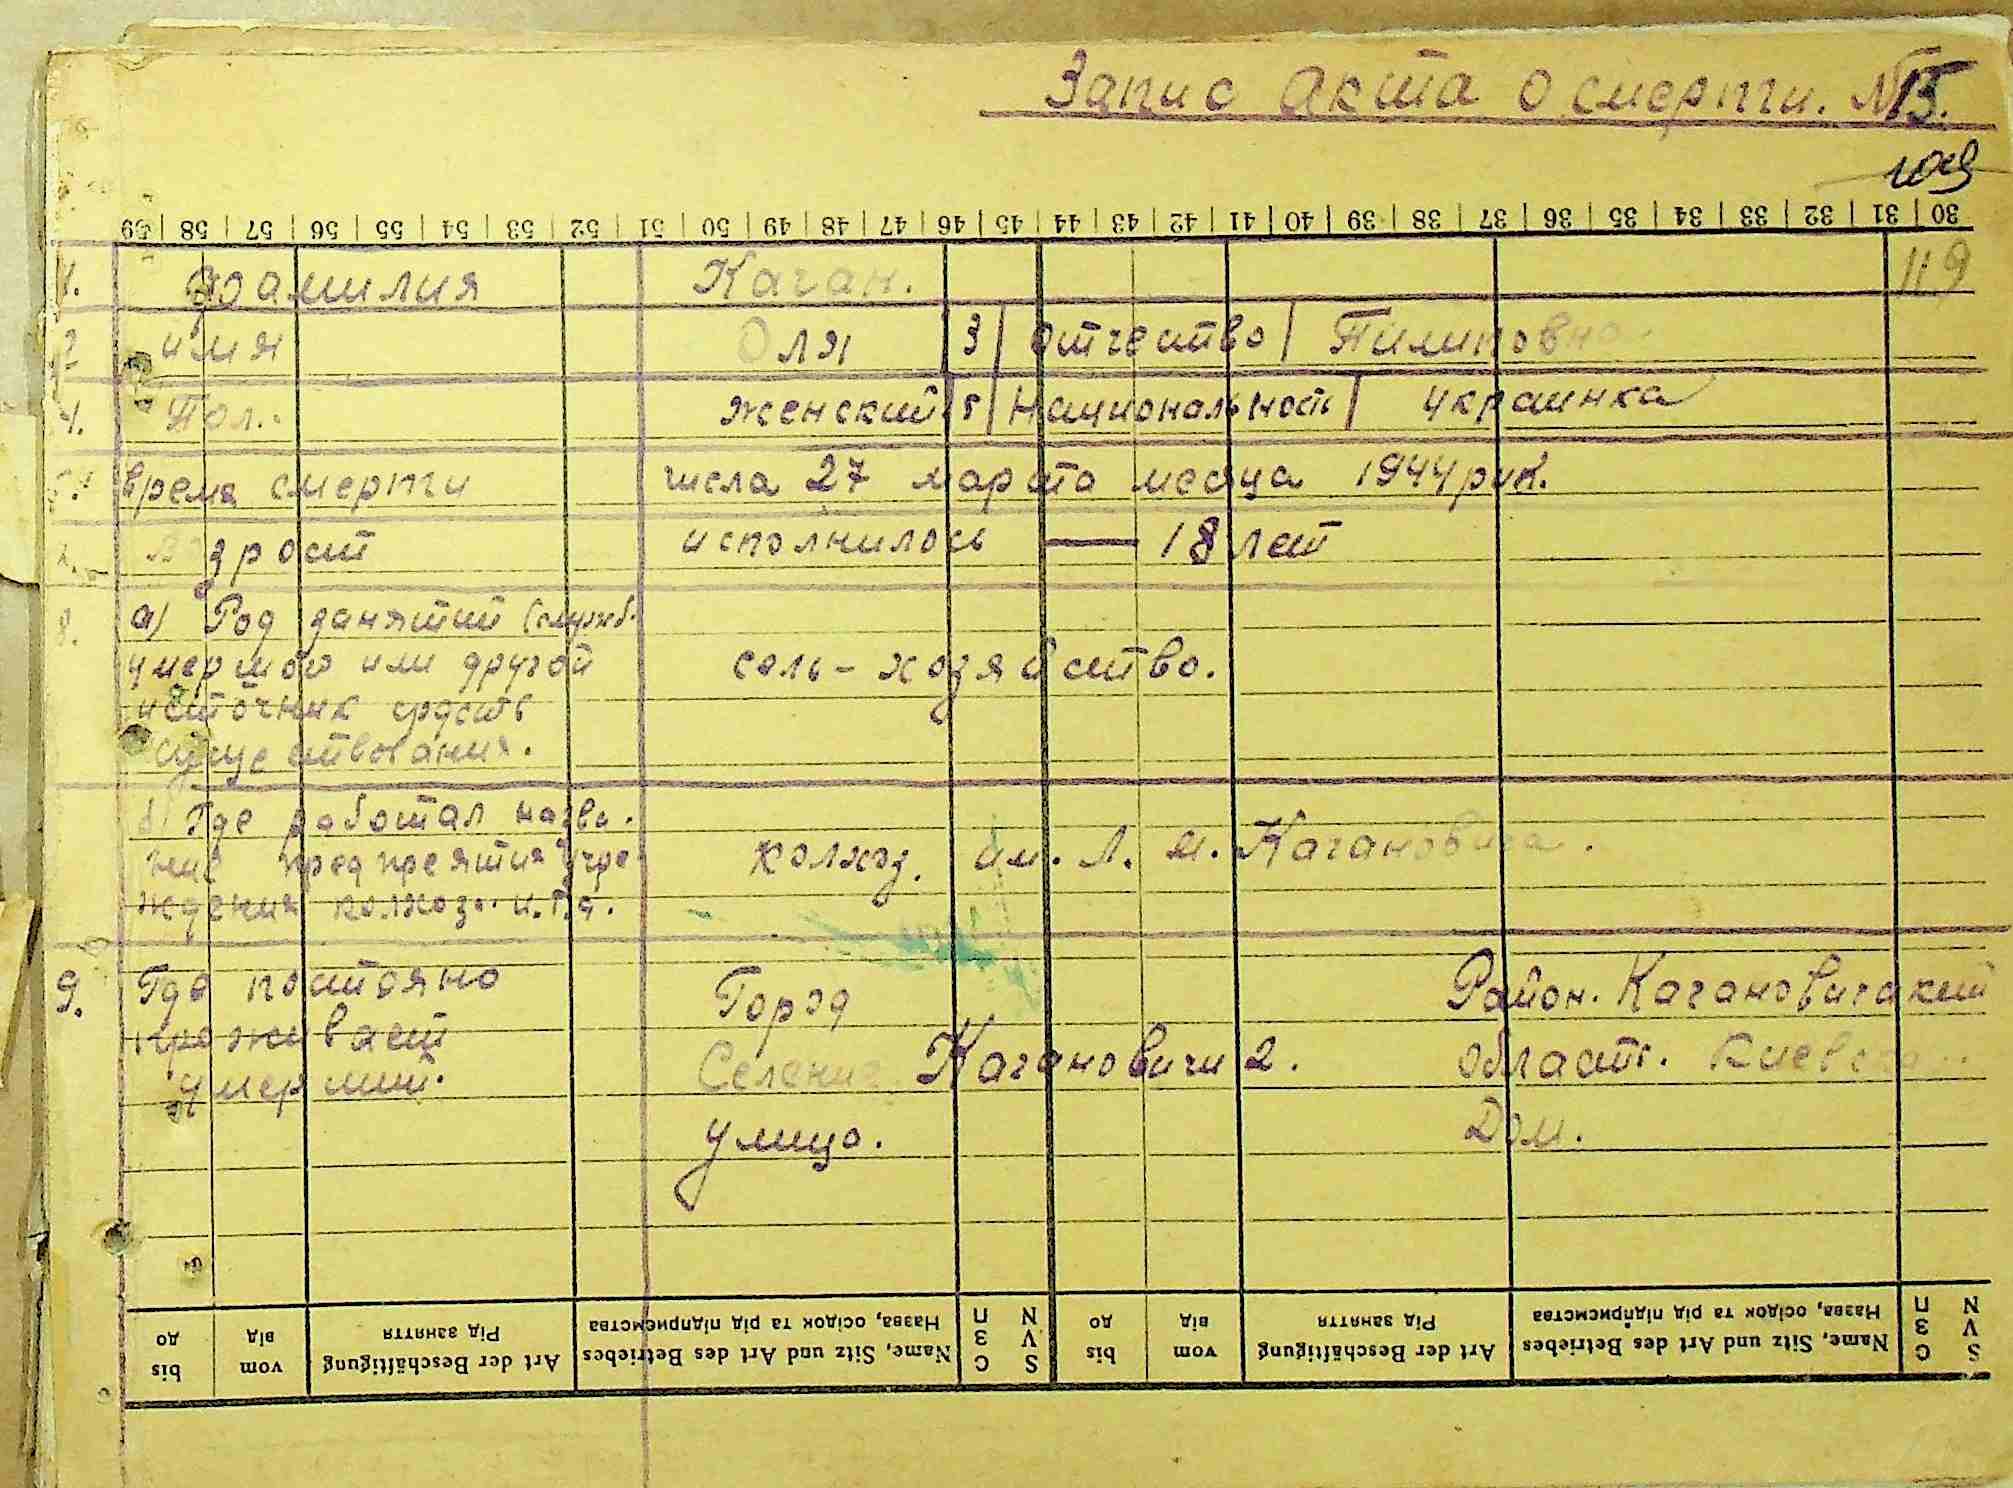 Запис акта о смерти. №15.
109
59 | 58 | 57 | 56 | 55 | 54 | 53 | 52 | 51 | 50 | 49 | 48 | 47 | 46 | 45 | 44 | 43 | 42 | 41 | 40 | 39 | 38 | 37 | 36 | 35 | 34 | 33 | 32 | 31 | 30
1. Фамилия Каган. 119
2 имя Оля 3 Отчество Пилиповна
4. Пол. женский 5 Национальность украинка
время смерти числа 27 марта месяца 1944 рик.
возрост исполнилось — 18 лет
8. а) Род занятий (служб.
умершого или другой сель-хозяйство.
источник средств
существования.
б) Где работал назва.
ние предпреятия учре колхоз. им. Л. М. Кагановича.
ждения колхоз.. и.т.д.
9. Где постояно Город Район. Кагановичский
проживает Селение Кагановичи 2. Область. Киевска
умерший. улица. Дом.
bis vom Art der Beschäftigung Name, Sitz und Art des Betriebes C S bis vom Art der Beschäftigung Name, Sitz und Art des Betriebes C S
до від Рід заняття Назва, осідок та рід підприємства З V до від Рід заняття Назва, осідок та рід підприємства З V
П N П N